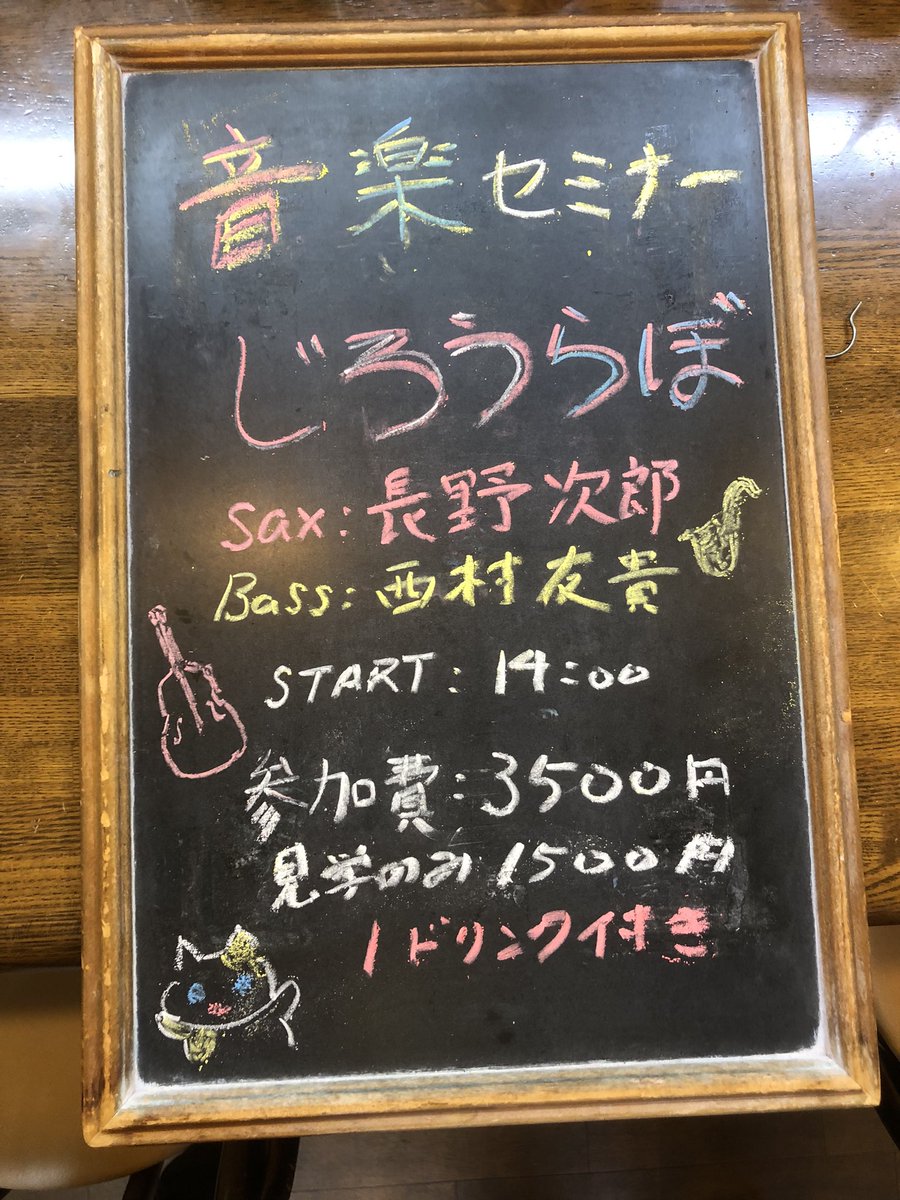 音楽セミナー
じろうらぼ
Sax:長野次郎
Bass:西村友貴
START:14:00
参加費:3500円
見学のみ1500円
1ドリンク付き